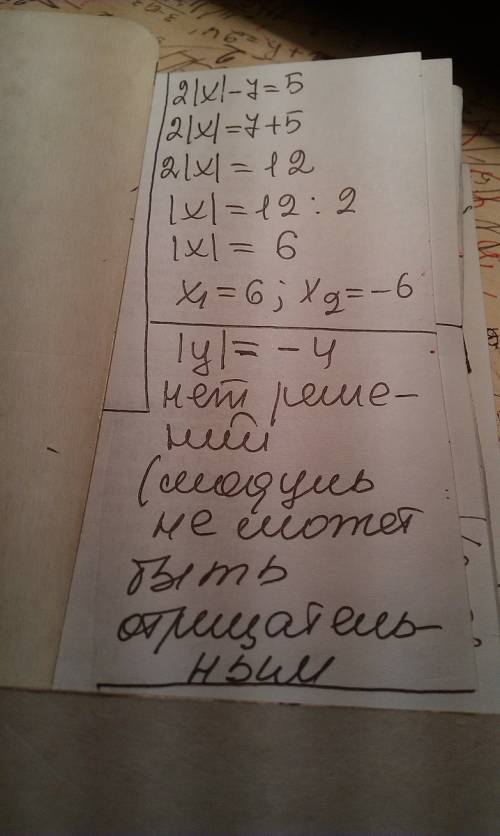 2|x|-7=5
2|x|=7+5
2|x|=12
|x|=12:2
|x|= 6
x1=6; x2=-6
|y|=-4
нет реше-
ний
(модуль
не может
быть
отрицатель-
ным